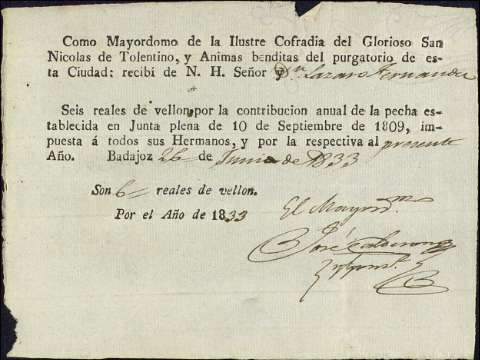 Como Mayordomo de la Ilustre Cofradia del Glorioso San
Nicolas de Tolentino, y Animas benditas del purgatorio de es-
ta Ciudad: recibí de N. H. Señor Dn Lazaro Fernandez
Seis reales de vellon por la contribucion anual de la pecha es-
tablecida en Junta plena de 10 de Septiembre de 1809, im-
puesta á todos sus Hermanos, y por la respectiva al presente
Año. Badajoz 26 de Junio de 1833
Son 6 reales de vellon.
Por el Año de 1833
El Mayordmo
José Calderon